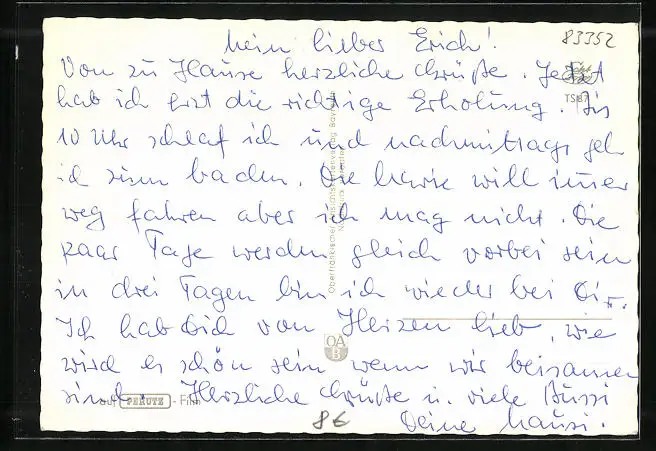 Mein lieber Erich!
83352
Von zu Hause herzliche Grüße. Jetzt
hab ich erst die richtige Erholung. Bis
TS 87
10 Uhr schlaf ich und nachmittags geh
ich zum baden. Die will immer
weg fahren aber ich mag nicht. Die
paar Tage werden gleich vorbei sein
in drei Tagen bin ich wieder bei Dir.
Ich hab Dich von Herzen lieb, wie
wird es schön sein wenn wir beisammen
sind. Herzliche Grüße u. viele Bussi
Deine Mausi.
Oberfränkischer Ansichtskartenverlag Bayreuth
OA
B
auf PERUTZ - Film
8€